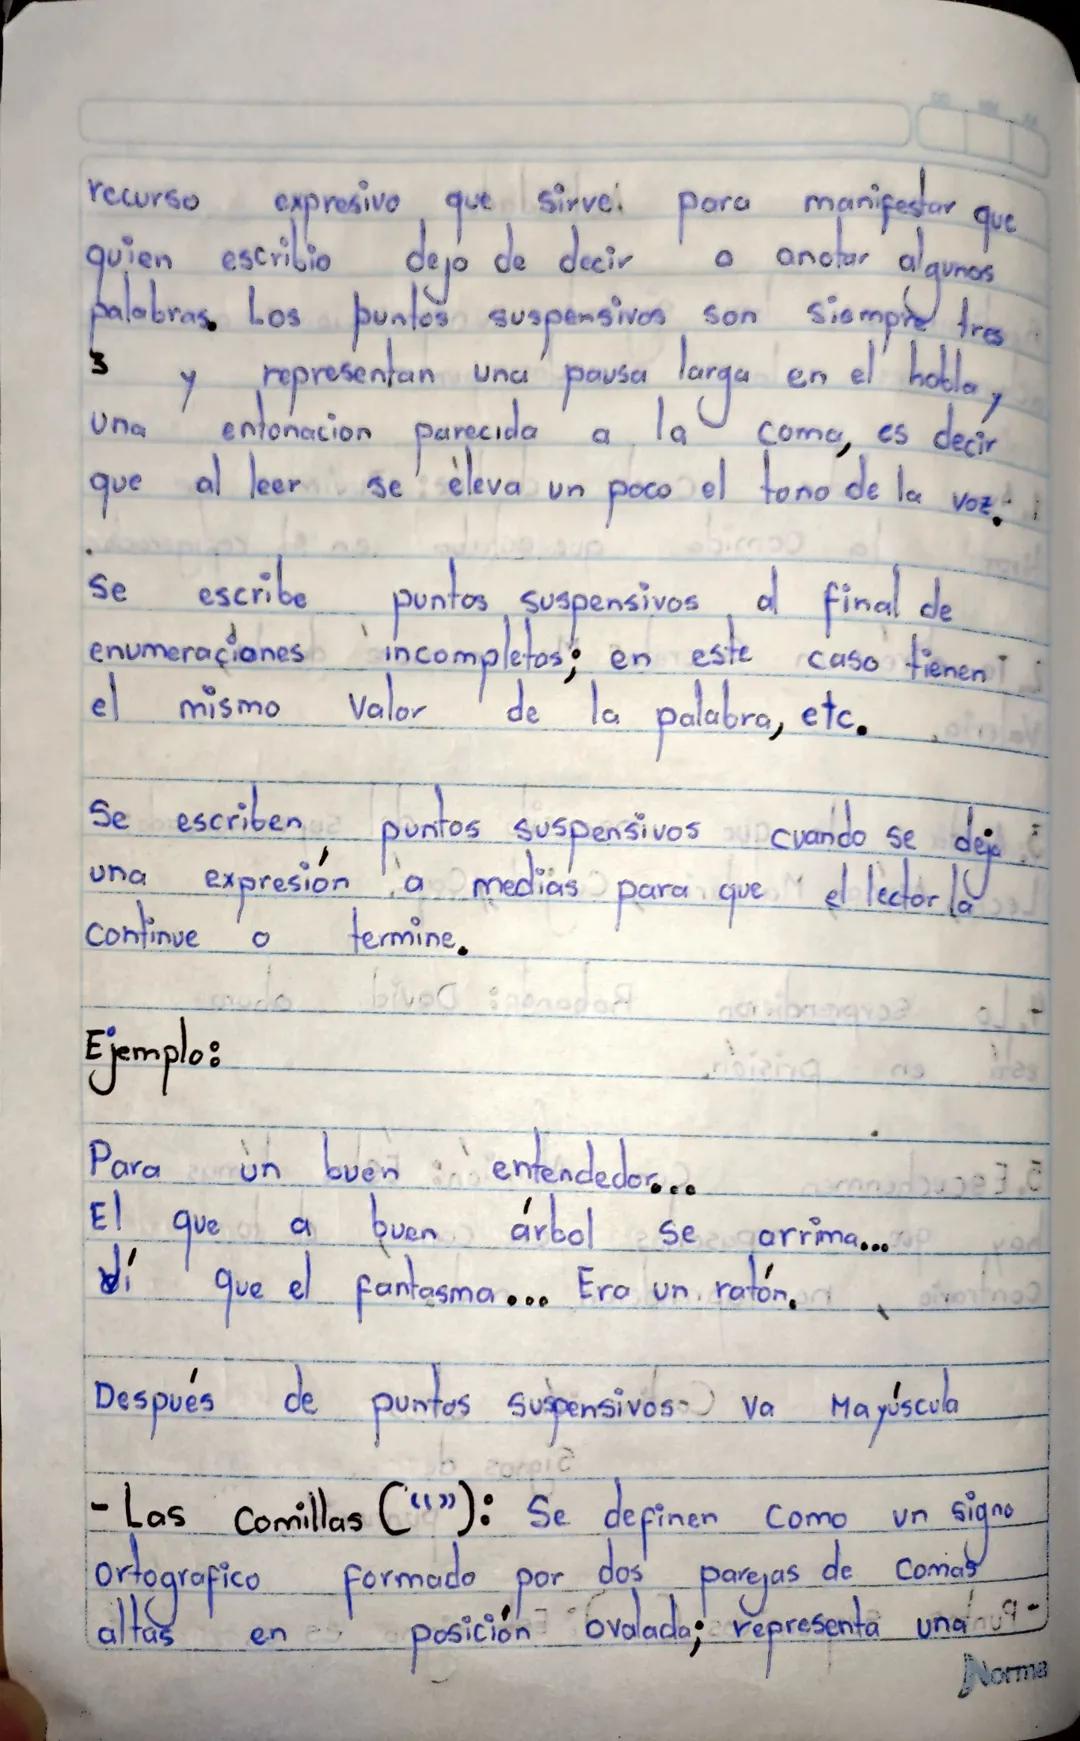 recurso expresivo que sirve para manifestar que
quien escribio dejo de decir o anotar algunas
palabras. Los puntos suspensivos son siempre tres
3 y representan una pausa larga en el habla y
una entonacion parecida a la coma, es decir
que al leer se eleva un poco el tono de la voz.
Se escribe puntos suspensivos al final de
enumeraciones incompletas; en este caso tienen
el mismo valor de la palabra, etc.
Se escriben puntos suspensivos cuando se deja
una expresión a medias para que el lector la
continue o termine.
Ejemplo:
Para un buen entendedor...
El que a buen árbol se arrima...
dí que el fantasma... Era un ratón.
Después de puntos suspensivos va Mayúscula
- Las Comillas (“”): Se definen como un signo
ortografico formado por dos parejas de comas
altas en posición ovalada; representa una
Norma